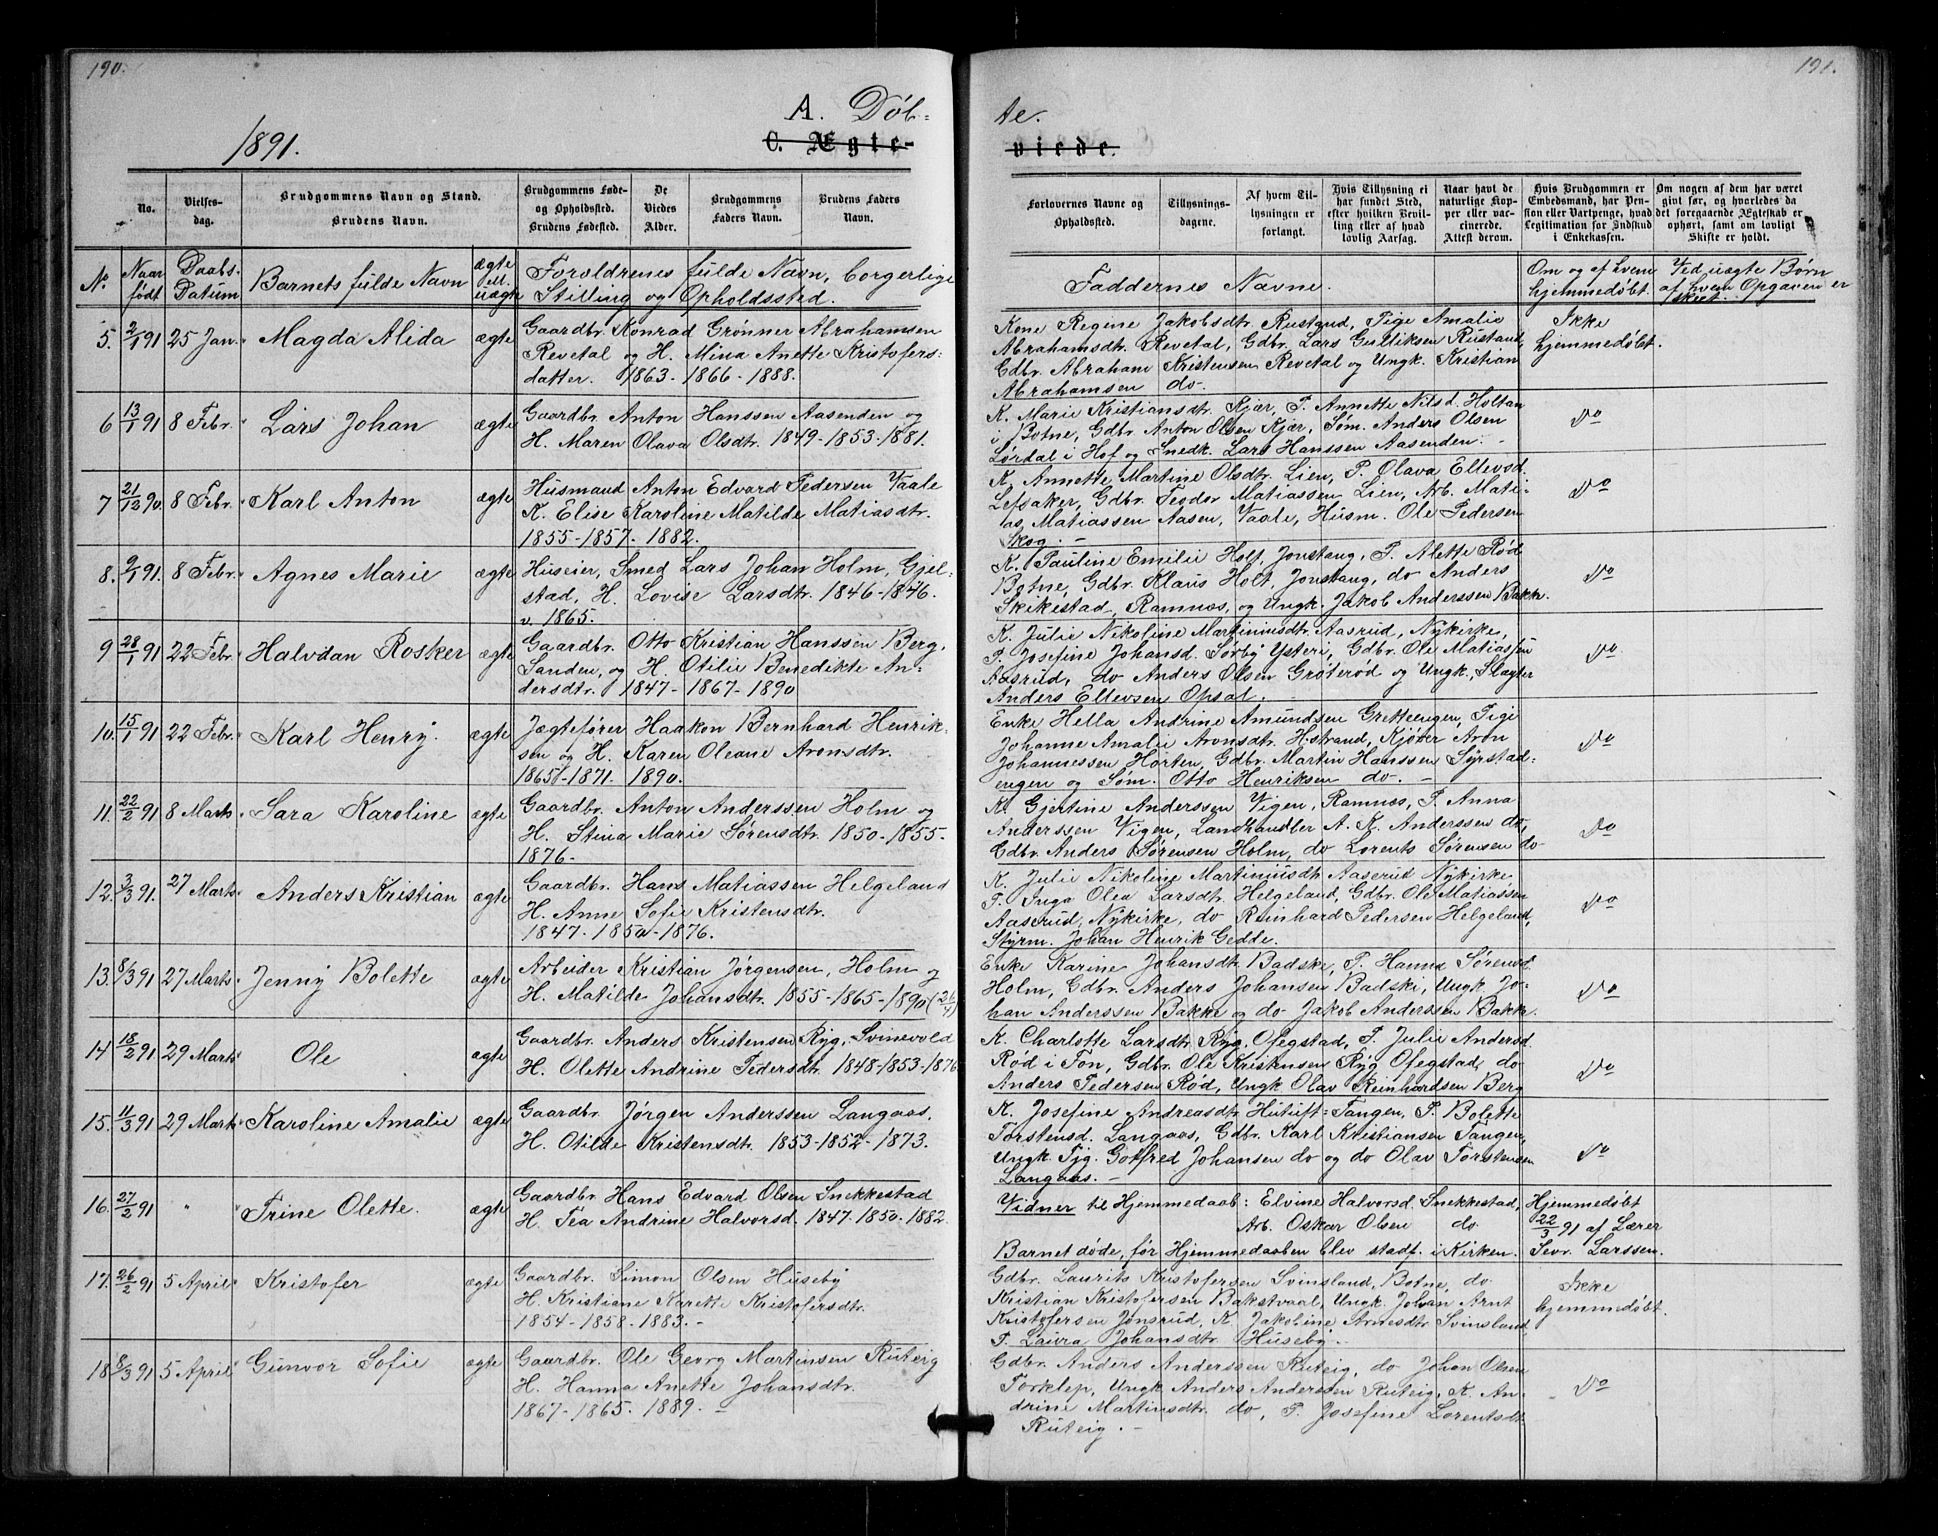 190.
191.
1891.
A. Døb-
te.
C. Ægte-
viede.
No.
Vielses-
dag.
Brudgommens Navn og Stand.
Brudens Navn.
Brudgommens Føde-
og Opholdssted.
Brudens Fødested.
De
Viedes
Alder.
Brudgommens
Faders Navn.
Brudens Faders
Navn.
Forlovernes Navne og
Opholdssted.
Tillysnings-
dagene.
Af hvem Til-
lysningen er
forlangt.
Hvis Tillysning ei
har fundet Sted,
efter hvilken Bevil-
ling eller af hvad
lovlig Aarsag.
Naar havt de
naturlige Kop-
per eller vac-
cinerede.
Attest derom.
Hvis Brudgommen er
Embedsmand, har Pen-
sion eller Vartpenge, hvad
Legitimation for Indskud
i Enkekassen.
Om nogen af dem har været
givt før, og hvorledes da
det foregaaende Ægteskab er
ophørt, samt om lovligt
Skifte er holdt.
No.
Naar
født
Daabs-
Datum
Barnets fulde Navn
ægte
ell.
uægte
Forældrenes fulde Navn, borgerlige
Stilling og Opholdssted.
Faddernes Navne.
Om og af hvem
hjemmedøbt.
Ved uægte Børn
af hvem Opgaven er
skeet.
5. 2/1 91 25 Jan. Magda Alida ægte
Gaardbr. Konrad Grønner Abrahamsen
Revetal og H. Mina Anette Kristofers-
datter. 1863. 1866 - 1888.
Kone Regine Jakobsdtr. Rustand, Pige Amalie
Abrahamsdtr. Revetal, Gdbr. Lars Gulliksen Rustand,
Gdbr. Abraham Kristensen Revetal og Ungk. Kristian
Abrahamsen do.
Ikke
hjemmedøbt.
6 13/1 91 8 Febr. Lars Johan ægte
Gaardbr. Anton Hanssen Aasenden og
H. Maren Olava Olsdtr. 1849 - 1853 - 1881.
K. Marie Kristiansdtr. Kjær, P. Annette Nilsd. Holtan
i Botne, Gdbr. Anton Olsen Kjær, Søm. Anders Olsen
Lørdal i Hof og Snedk. Lars Hanssen Aasenden. -
Do
7 21/12 90. 8 Febr. Karl Anton ægte
Husmand Anton Edvard Pedersen Vaale
K. Elise Karoline Matilde Matiasdtr.
1855 - 1857. 1882.
K. Annette Martine Olsdtr. Lien, P. Olava Ellevsd.
Lefsaker, Gdbr. Teodor Matiassen Lien, Arb. Mati-
as Matiassen Aasen, Vaale, Husm. Ole Pedersen
Skog. -
Do
8. 9/1 91. 8 Febr. Agnes Marie ægte
Huseier, Smed Lars Johan Holm, Gjel-
stad, H. Lovise Larsdtr. 1846 - 1846.
v. 1865.
K. Pauline Emilie Holt, Jonstang, P. Alette Rød
Botne, Gdbr. Klaus Holt, Jonstang, do Anders
Skikestad, Ramnæs, og Ungk. Jakob Anderssen Bakke.
Do
9 28/1 91 22 Febr. Halvdan Rosker ægte
Gaardbr. Otto Kristian Hanssen Berg,
Sanden, og H. Otilie Benedikte An-
dersdtr. 1847 - 1867 - 1890
K. Julie Nikoline Martiniusdtr. Aasrud, Nykirke,
P. Josefine Johansd. Sørby Ysteri, Gdbr. Ole Matiassen
Aasrud, do Anders Olsen Grøterød og Ungk., Slagter
Anders Ellevsen Opsal. -
Do
10. 15/1 91 22 Febr. Karl Henry. ægte
Jægtefører Haakon Bernhard Henrik-
sen og H. Karen Oleane Aronsdtr.
1865 - 1871. 1890.
Enke Hella Andrine Amundsen Gretteengen, Pige
Johanne Amalie Aronsdtr. Hstrand, Kjører Aron
Johannessen Horten, Gdbr. Martin Hanssen Syrstad-
engen og Søm. Otto Henriksen do. -
Do
11. 22/2 91 8 Marts Sara Karoline ægte
Gaardbr. Anton Anderssen Holm og
H. Stina Marie Sørensdtr. 1850 - 1855 -
1876.
K. Gjertine Anderssen Vigen, Ramnæs, P. Anna
Anderssen Vigen, Landhandler A. K. Anderssen do,
Gdbr. Anders Sørensen Holm, do Lorents Sørensen do
Do
12. 3/3 91. 27 Marts Anders Kristian ægte
Gaardbr. Hans Matiassen Helgeland
H. Anne Sofie Kristensdtr.
1847. 1850 - 1876.
K. Julie Nikoline Martiniusdtr Aaserud Nykirke
P. Inga Olea Larsdtr. Helgeland, Gdbr. Ole Matiassen
Aaserud, Nykirke, do Reinhard Pedersen Helgeland,
Styrm. Johan Henrik Gedde.
Do
13. 8/3 91 27 Marts Jenny Bolette ægte
Arbeider Kristian Jørgensen, Holm og
H. Matilde Johansdtr. 1855 - 1865 - 1890 (26/9)
Enke Karine Johansdtr. Badske, P. Hanna Sørensd.
Holm, Gdbr. Anders Johansen Badski, Ungk Jo-
han Anderssen Bakke og do Jakob Anderssen Bakke.
Do
14 18/2 91 29 Marts Ole ægte
Gaardbr. Anders Kristensen Ryg, Svinevold
H. Olette Andrine Pedersdtr. 1848 - 1853 - 1876
K. Charlotte Larsdtr. Ryg, Ofegstad, P. Julie Andersd.
Rød i Fon, Gdbr. Ole Kristensen Ryg Ofegstad, do
Anders Pedersen Rød, Ungk Olav Reinhardsen Berg
Do
15. 11/3 91 29 Marts Karoline Amalie ægte
Gaardbr. Jørgen Anderssen Langaas.
H. Otilde Kristensdtr. 1853 - 1852 - 1873.
K. Josefine Andreasdtr. Hutuft-Tangen, P. Bolette
Torstensd. Langaas, Gdbr. Karl Kristiansen Tangen,
Ungk. Tjg. Gotfred Johansen do og do Olav Torstensen
Langaas. -
Do
16. 27/2 91 " Trine Olette. ægte
Gaardbr. Hans Edvard Olsen Snekkestad
H. Tea Andrine Halvorsd. 1847. 1850. 1882.
Vidner til Hjemmedaab: Elvine Halvorsd. Snekkestad,
Arb. Oskar Olsen do
Barnet døde, før Hjemmedaaben blev stadf. i Kirken.
Hjemmedøbt
22/3 91 af Lærer
Sevr. Larssen.
17. 26/2 91 5 April Kristofer ægte
Gaardbr. Simon Olsen Huseby
H. Kristiane Karette Kristofersdtr.
1854 - 1858 - 1883. -
Gdbr. Laurits Kristofersen Svinsland, Botne, do
Kristian Kristofersen Bakstvaal, Ungk. Johan Arnt
Kristofersen Jonsrud, K. Jakobine Arnesdtr. Svinsland
P. Laura Johansdtr. Huseby. -
Ikke
hjemmedøbt.
18 8/3 91 5 April Gunvor Sofie ægte
Gaardbr. Ole Georg Martinsen Ruteig
H. Hanna Anette Johansdtr.
1867 - 1865. 1889. -
Gdbr. Anders Anderssen Ruteig, do Johan Olsen
Torklep, Ungk Anders Anderssen Ruteig, K. An-
drine Martinsdtr. do, P. Josefine Lorentsdtr
Ruteig. -
Do